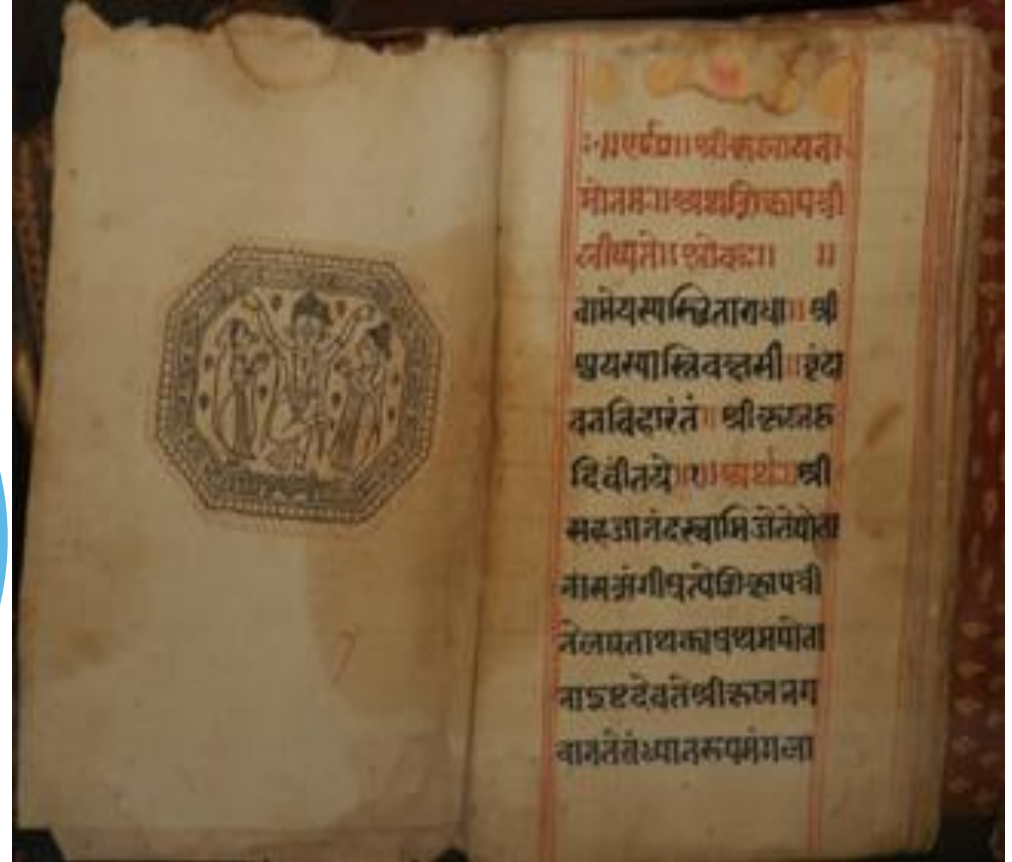 ॥श्रीकृष्णायन
मोनमः॥अथशिक्षापत्री
लीष्यते॥श्लोकः॥ ॥
वामेयस्यास्थिताराधा॥श्री
श्चयस्यास्तिवक्षसी॥वृंदा
वनविहारंतं॥श्रीकृष्णहृ
दिचींतये॥१॥अर्थः॥श्री
सहजानंदस्वामिजेतेपोता
नासत्संगीप्रत्येशिक्षापत्री
नेलखताथकाप्रथमपोता
नाइष्टदेवतेश्रीकृष्णभग
वानतेनुंध्यानरूपमंगला